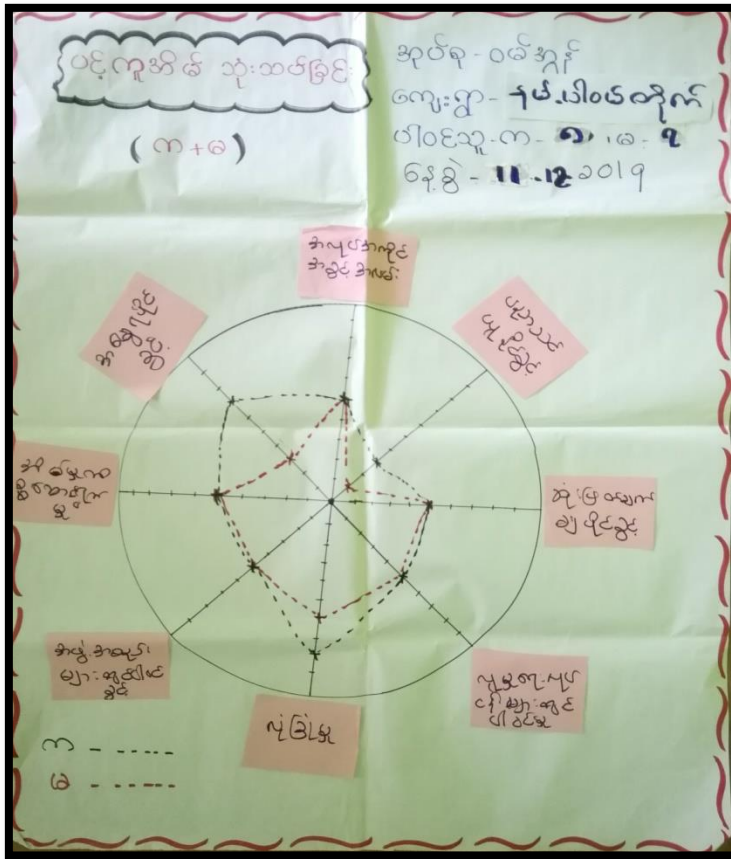 ပင့်ကူအိမ် သုံးသပ်ခြင်း
(က+မ)
အုပ်စု - ဝမ်အွန်
ကျေးရွာ - နမ့်ပါဝယ်တိုက်
ပါဝင်သူ - က - ၅၊ မ - ၃
နေ့စွဲ - 11.12.2019
အလုပ်အကိုင်
အခွင့်အလမ်း
ပညာသင်
ယူနိုင်ခွင့်
ဆုံးဖြတ်ချက်
ချပိုင်ခွင့်
လူမှုရေးလုပ်
ငန်းများတွင်
ပါဝင်မှု
လုံခြုံမှု
အဖွဲ့အစည်း
များတွင်ပါဝင်
ခွင့်
အိမ်မှုကိစ္စ
ဆောင်ရွက်
မှု
အမွေပိုင်
ဆိုင်မှု
က -
မ -